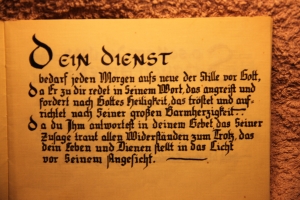 Dein Dienst
bedarf jeden Morgen aufs neue der Stille vor Gott,
da Er zu dir redet in Seinem Wort, das angreift und
fordert nach Gottes Heiligkeit, das tröstet und auf-
richtet nach Seiner großen Barmherzigkeit..
da du Ihm antwortest in deinem Gebet, das Seiner
Zusage traut allen Widerständen zum Trotz, das
dein Leben und Dienen stellt in das Licht
vor Seinem Angesicht.